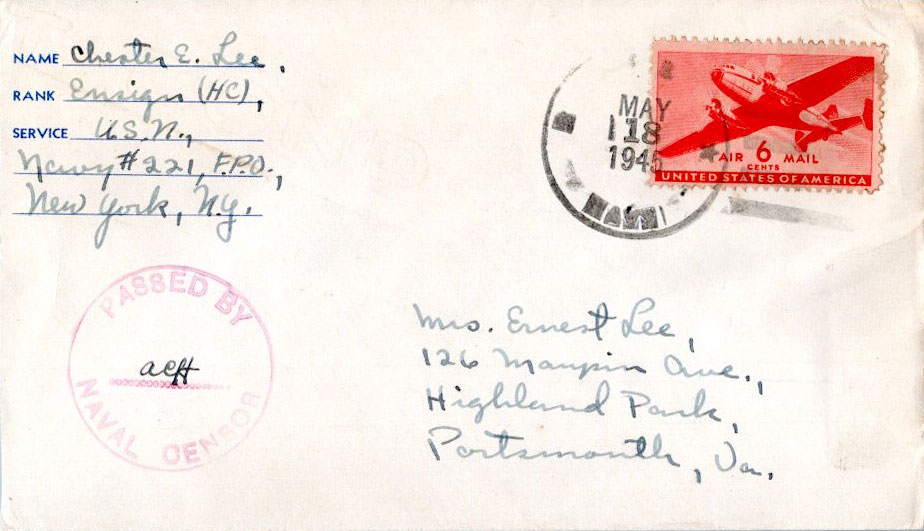 NAME Chester E. Lee,
RANK Ensign (HC),
SERVICE U.S.N.,
Navy #221, F.P.O.,
New York, N.Y.
MAY
18
1945
AIR 6 MAIL
CENTS
UNITED STATES OF AMERICA
PASSED BY
NAVAL CENSOR
Mrs. Ernest Lee,
126 Maupin Ave.,
Highland Park,
Portsmouth, Va.